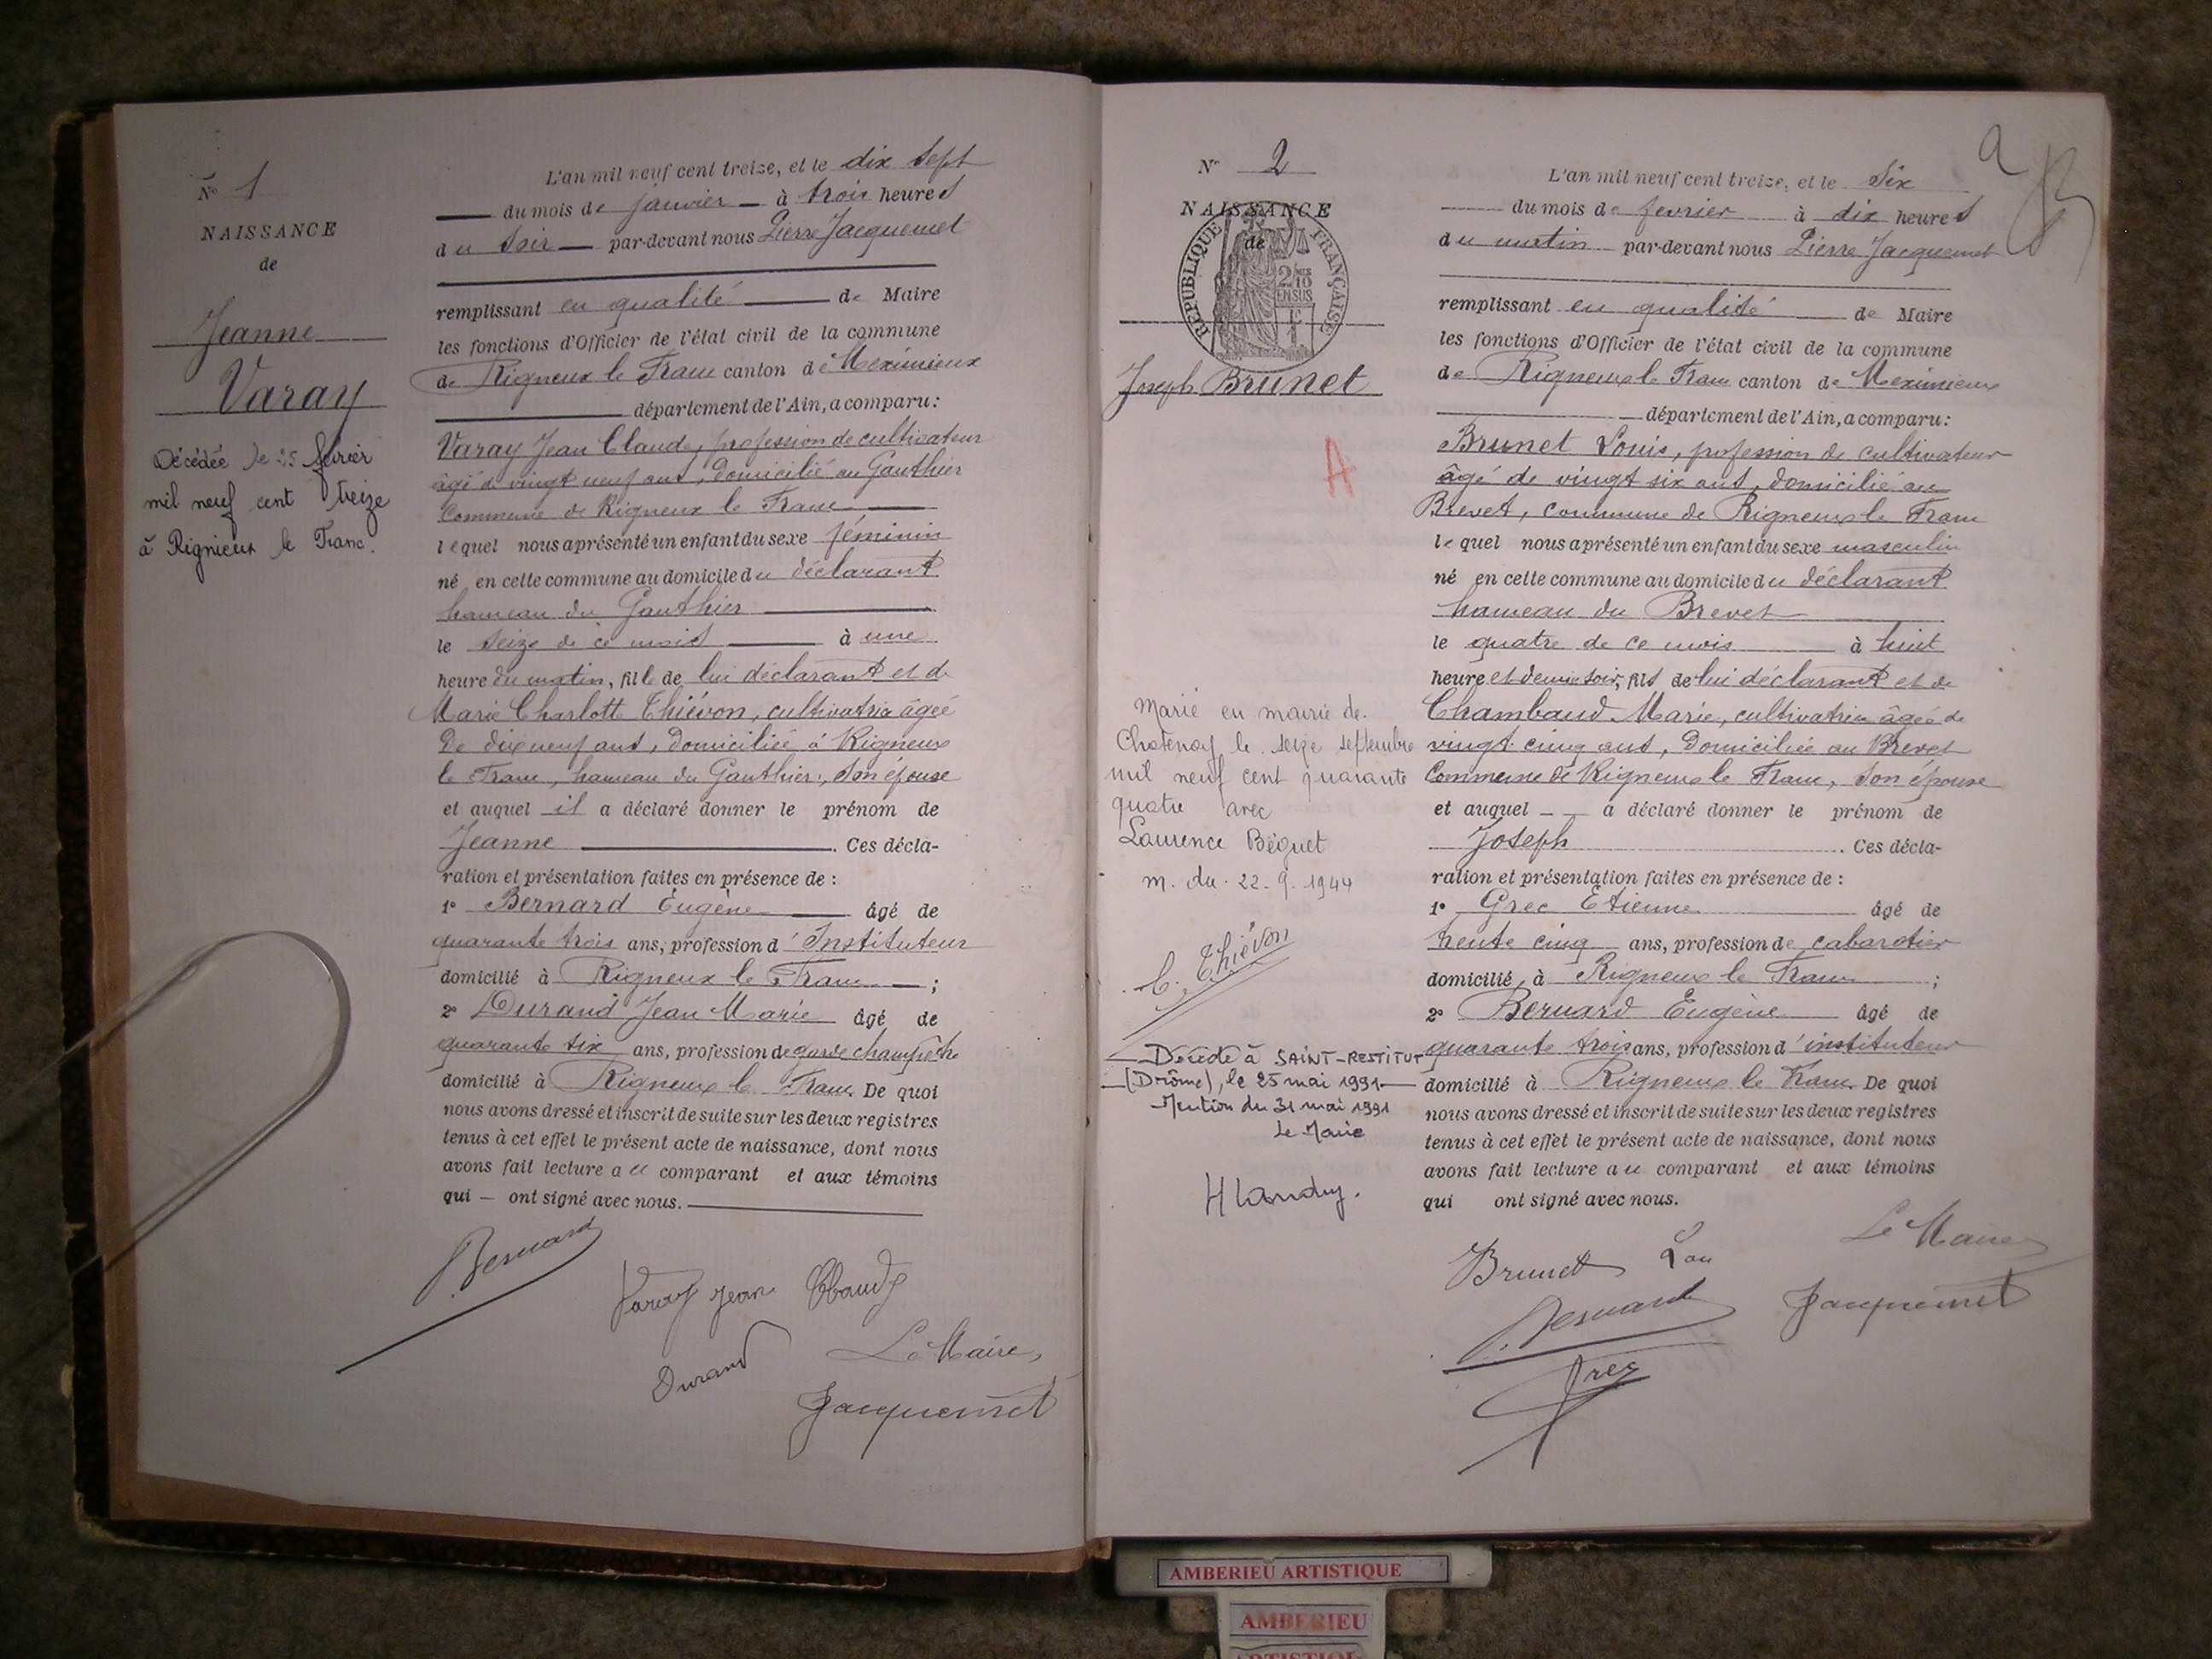 N° 1
NAISSANCE
de
Jeanne
Varay
Décédée le 25 février
mil neuf cent treize
à Rignieux le Franc.
L'an mil neuf cent treize, et le dix sept
du mois de janvier à trois heures
du soir par-devant nous Pierre Jacquemet
remplissant en qualité de Maire
les fonctions d'Officier de l'état civil de la commune
de Rigneux le Franc canton de Meximieux
département de l'Ain, a comparu:
Varay Jean Claude, profession de cultivateur
âgé de vingt neuf ans, domicilié au Gauthier
Commune de Rigneux le Franc
lequel nous a présenté un enfant du sexe féminin
né en cette commune au domicile du déclarant
hameau du Gauthier
le seize de ce mois à une
heure du matin, fille de lui déclarant et de
Marie Charlott Thiévon, cultivatrice âgée
de dix neuf ans, domiciliée à Rigneux
le Franc, hameau du Gauthier, son épouse
et auquel il a déclaré donner le prénom de
Jeanne. Ces décla-
ration et présentation faites en présence de :
1° Bernard Eugène âgé de
quarante trois ans, profession d'Instituteur
domicilié à Rigneux le Franc ;
2° Durand Jean Marie âgé de
quarante six ans, profession de garde champêtre
domicilié à Rigneux le Franc. De quoi
nous avons dressé et inscrit de suite sur les deux registres
tenus à cet effet le présent acte de naissance, dont nous
avons fait lecture au comparant et aux témoins
qui — ont signé avec nous.
Bernard
Varay Jean Claude
Durand
Le Maire,
Jacquemet
N° 2
NAISSANCE
de
RÉPUBLIQUE FRANÇAISE
2/10 EN SUS
Joseph Brunet
A
Marié en mairie de
Chatenay le seize septembre
mil neuf cent quarante
quatre avec
Laurence Béguet
m. du. 22-9-1944
C. Thiévon
Décédé à SAINT-RESTITUT
(Drôme), le 25 mai 1991
Mention du 31 mai 1991
Le Maire
H Landry.
2
L'an mil neuf cent treize, et le six
du mois de fevrier à dix heures
du matin par-devant nous Pierre Jacquemet
remplissant en qualité de Maire
les fonctions d'Officier de l'état civil de la commune
de Rigneux le Franc canton de Meximieux
département de l'Ain, a comparu:
Brunet Louis, profession de cultivateur
âgé de vingt six ans, domicilié au
Brevet, commune de Rigneux le Franc
lequel nous a présenté un enfant du sexe masculin
né en cette commune au domicile du déclarant
hameau du Brevet
le quatre de ce mois à huit
heure et demie soir, fils de lui déclarant et de
Chambaud Marie, cultivatrice âgée de
vingt cinq ans, domiciliée au Brevet
Commune de Rigneux le Franc, son épouse
et auquel — — a déclaré donner le prénom de
Joseph. Ces décla-
ration et présentation faites en présence de :
1° Grec Etienne âgé de
trente cinq ans, profession de cabaretier
domicilié à Rigneux le Franc ;
2° Bernard Eugène âgé de
quarante trois ans, profession d'instituteur
domicilié à Rigneux le Franc. De quoi
nous avons dressé et inscrit de suite sur les deux registres
tenus à cet effet le présent acte de naissance, dont nous
avons fait lecture au comparant et aux témoins
qui ont signé avec nous.
Brunet Lou
Le Maire
Bernard
Jacquemet
AMBERIEU ARTISTIQUE
AMBERIEU
ARTISTIQUE